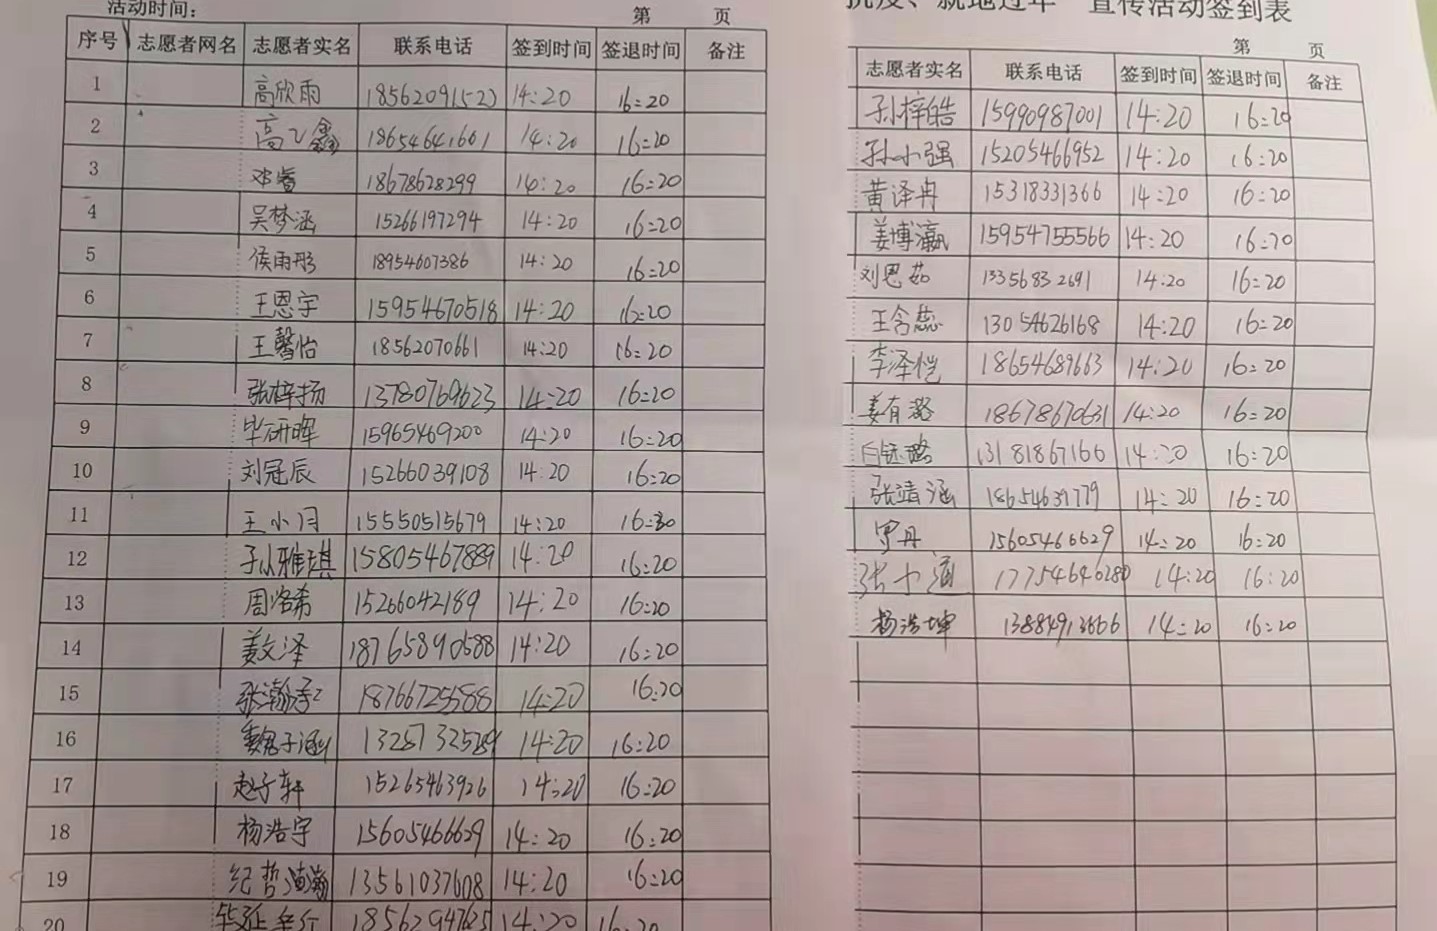 活动时间：
第 页
序号 志愿者网名 志愿者实名 联系电话 签到时间 签退时间 备注
1 高欣雨 14:20 16:20
2 14:20 16:20
3 邓睿 18678628299 14:20 16:20
4 吴梦涵 15266197294 14:20 16:20
5 侯雨彤 18954607386 14:20 16:20
6 王恩宇 15954670518 14:20 16:20
7 王馨怡 18562070661 14:20 16:20
8 张梓扬 13780769623 14:20 16:20
9 毕研晖 15965469200 14:20 16:20
10 刘冠辰 15266039108 14:20 16:20
11 王小闩 15550515679 14:20
12 孙雅琪 15805467889 14:20 16:20
13 周洺希 15266042189 14:20 16:20
14 姜文泽 18765890588 14:20 16:20
15 18766725588 14:20 16:20
16 魏子涵 14:20 16:20
17 赵子轩 15265463926 14:20 16:20
18 杨浩宇 15605466629 14:20 16:20
19 纪哲瀚 13561037608 14:20 16:20
20 14:20 16:20
抗疫、就地过年 宣传活动签到表
第 页
志愿者实名 联系电话 签到时间 签退时间 备注
孙梓皓 15990987001 14:20 16:20
孙小强 15205466952 14:20 16:20
黄泽冉 15318331366 14:20 16:20
姜博瀛 15954755566 14:20 16:20
刘恩茹 13356832691 14:20 16:20
王含蕊 13054626168 14:20 16:20
李泽恺 18654689663 14:20 16:20
姜有潞 18678670631 14:20 16:20
白钰璐 13181867166 14:20 16:20
张靖涵 18654631779 14:20 16:20
罗丹 15605466629 14:20 16:20
张小涵 17754646280 14:20 16:20
杨浩坤 14:20 16:20